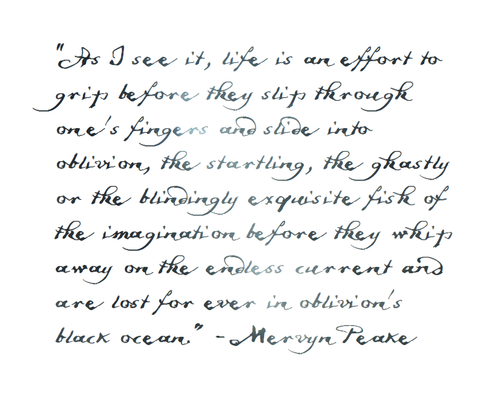 "As I see it, life is an effort to
grip before they slip through
one's fingers and slide into
oblivion, the startling, the ghastly
or the blindingly exquisite fish of
the imagination before they whip
away on the endless current and
are lost for ever in oblivion's
black ocean." - Mervyn Peake